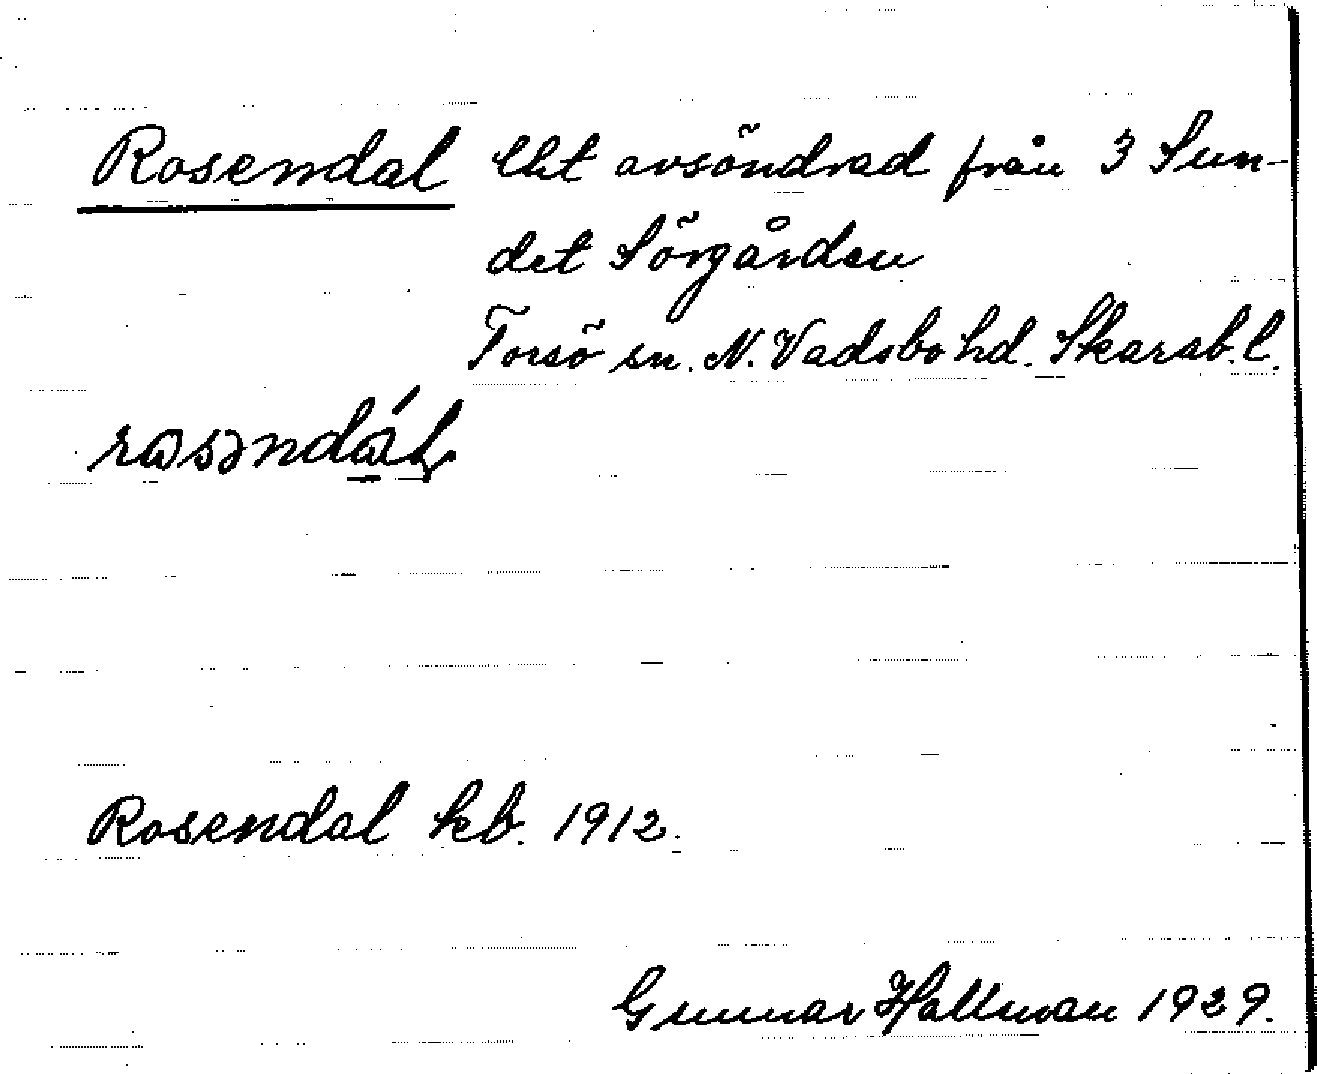 Rosendal lht avsöndrad från 3 Sun-
det Sörgården
Torsö sn. N. Vadsbo hd. Skarab. l.
Rosendal kb. 1912.
Gunnar Hallman 1929.